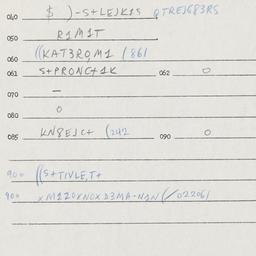 040 $ )-S+LEJK1S QTREJ683RS
050 R1M1T
060 ((KAT3RQM1 (861
061 S+PRONC+1K 062 0
070 -
080 0
085 KN8EJC+ (242 090 0
900 ((S+TIVLE,T+
900 XM120XNOXD3MA-N1N(/02206)